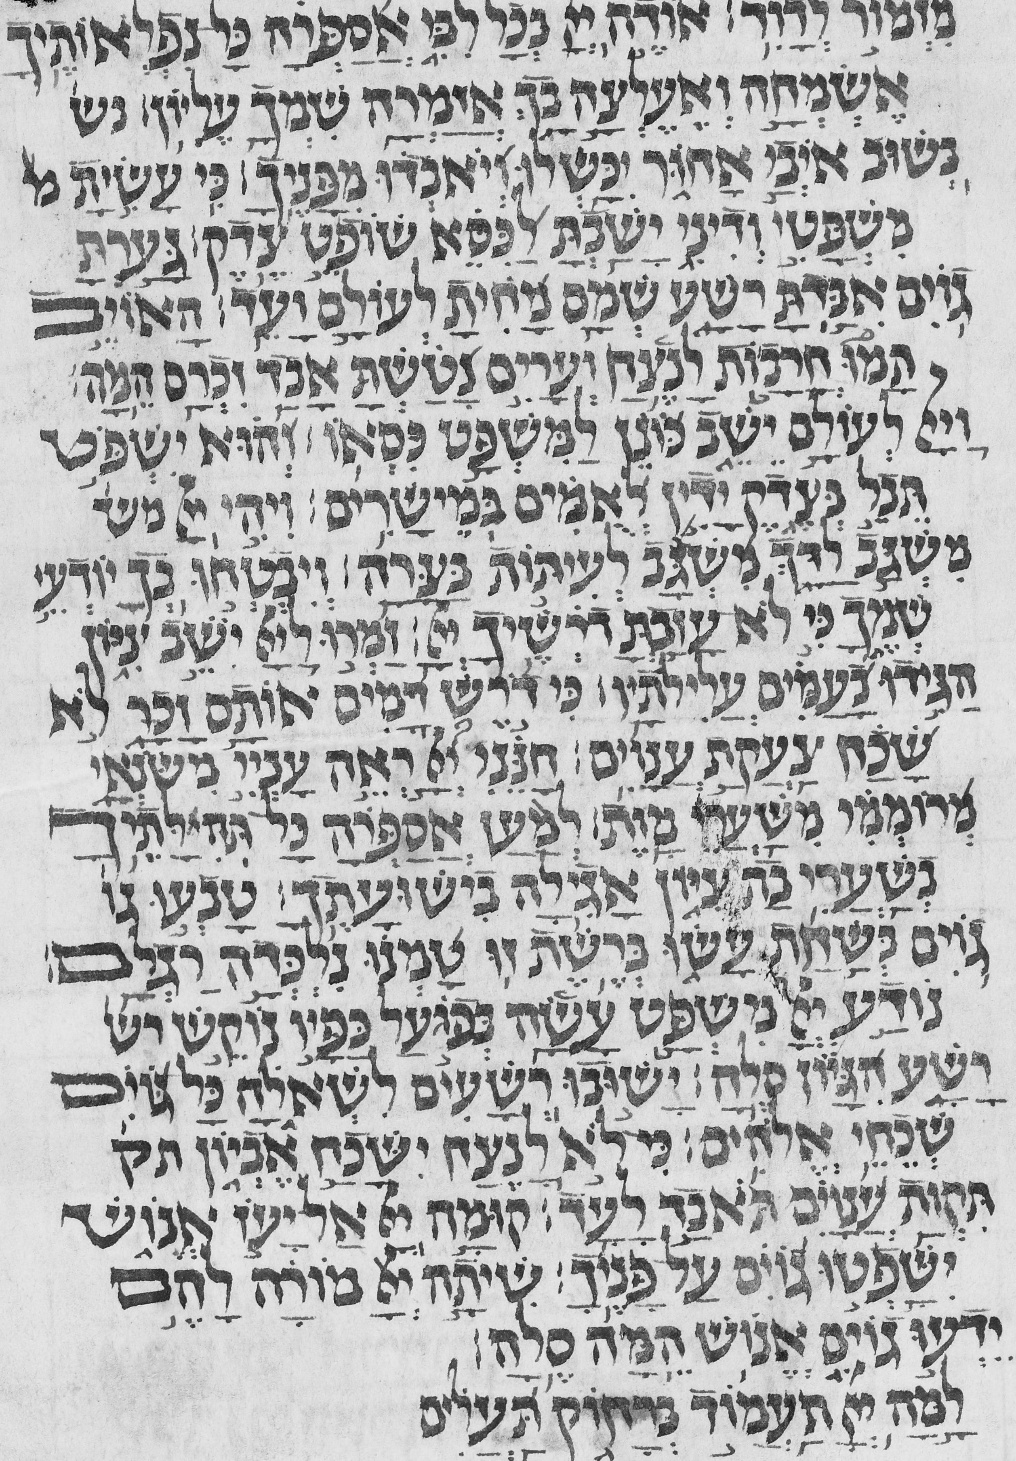 מזמור לדוד׃ אודה יי בכל לבי אספרה כל נפלאותיך
אשמחה ואעלצה בך אזמרה שמך עליון׃ בש
בשוב אויבי אחור יכשלו ויאבדו מפניך׃ כי עשית מ
משפטי ודיני ישבת לכסא שופט צדק׃ גערת
גוים אבדת רשע שמם מחית לעולם ועד׃ האויב
תמו חרבות לנצח וערים נתשת אבד זכרם המה׃
ויי לעולם ישב כונן למשפט כסאו׃ והוא ישפט
תבל בצדק ידין לאמים במישרים׃ ויהי יי מש
משגב לדך משגב לעיתות בצרה׃ ויבטחו בך יודעי
שמך כי לא עזבת דרשיך יי׃ זמרו ליי ישב ציון
הגידו בעמים עלילתיו׃ כי דורש דמים אותם זכר לא
שכח צעקת ענוים׃ חננני יי ראה עניי משנאי
מרוממי משערי מות׃ למען אספרה כל תהילתיך
בשערי בת ציון אגילה בישועתך׃ טבעו גו
גוים בשחת עשו ברשת זו טמנו נלכדה רגלם׃
נודע יי משפט עשה בפועל כפיו נוקש רש
רשע הגיון סלה׃ ישובו רשעים לשאולה כל גוים
שכחי אלהים׃ כי לא לנצח ישכח אביון תק
תקות ענוים תאבד לעד׃ קומה יי אל יעז אנוש
ישפטו גוים על פניך׃ שיתה יי מורה להם
ידעו גוים אנוש המה סלה׃
למה יי תעמוד ברחוק תעלים